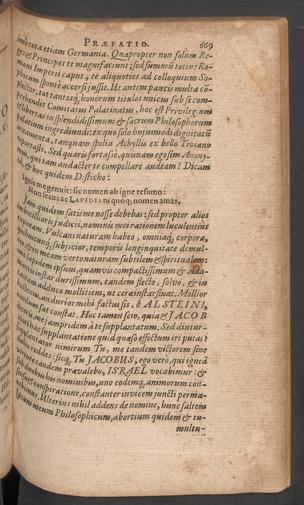 PRÆFATIO. 669
totâ etiam Germania. Quapropter non solùm Re-
ges & Principes te magnifaciunt; sed summũ totius Ro-
mani Imperii caput, te aliquoties ad colloquium
ptuum sponte accersi jussit. Ut autem paucis multa
plectar, tot tantosq; honorum titulos unicus sub se com-
prehendit Comitatus Palatinatus, hoc est Privilegium
celebritas in splendidissimum & sacrum Philosophorum
palatium ingrediundi: ex quo solo hujusmodi dignitatũ
tanquam spolia Achyllis ex bello Troiano
reportasti. Sed quæris fortasse, quinam ego sim Anony-
qui tam audacter te compellare audeam? Dicam
& hoc quidem Disticho:
Ignis me genuit: sic nomen ab igne resumo:
Non secus ac LAPIDIS tu quoq; nomen amas,
Jam quidem satis me nosse debebas: sed propter alios
judicii, nominis mei rationem luculentius
Vulcani naturam habeo, omniaq; corpora,
subjicior, temporis longinquitate demul-
meam verto naturam subtilem & spiritualem:
Lapidem ipsum, quamvis compactissimum & Ada-
instar durissimum, tandem flecto, solvo, & in
adduco mollitiem, ut ceræ instar fluat. Mollior
an durior mihi factus sis, ô ALSTEINI,
sat constat. Hoc tamen scio, quia & JACOB
jampridem à te supplantatum. Sed diutur-
hac supplantatione quid quæso effectum iri putas?
nimirum Tu, me tandem victorem sine
reddes: sicq; Tu JACOBUS, ego verò, qui igneâ
tandem prævalebo, ISRAEL vocabimur: &
his nominibus, uno eodemq; animorum con-
conspiratione, constanter invicem juncti perma-
Ulterius nihil addens de nomine, hunc saltem
meum Philosophicum, abortium quidem & tu-
multu-